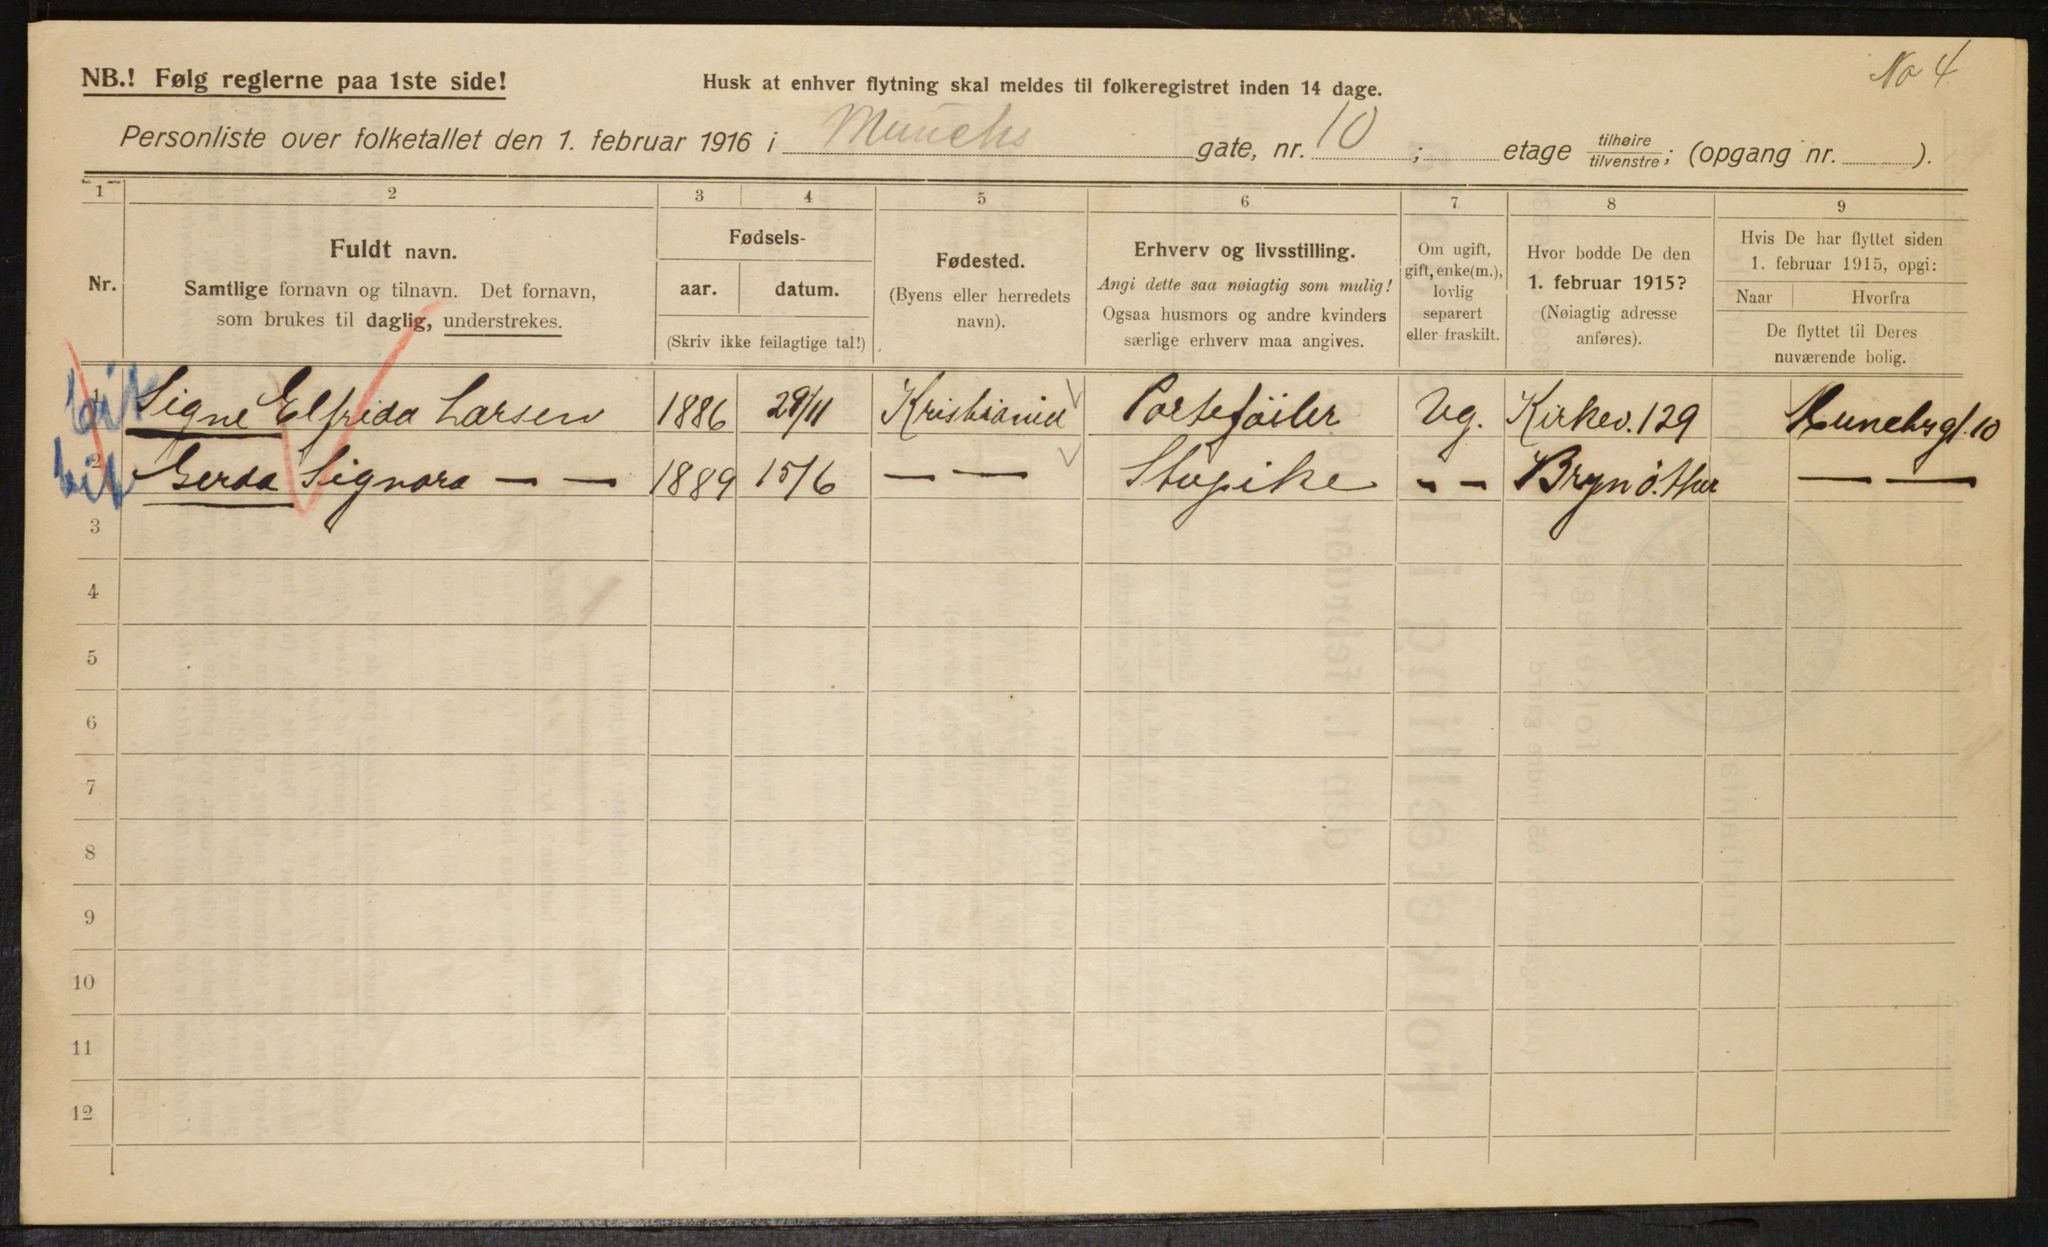 No 4
NB.! Følg reglerne paa 1ste side!
Husk at enhver flytning skal meldes til folkeregistret inden 14 dage.
Personliste over folketallet den 1. februar 1916 i Munchs gate, nr. 10 ; etage tilhøire/tilvenstre; (opgang nr. ).
1 2 3 4 5 6 7 8 9
Nr.
Fuldt navn.
Samtlige fornavn og tilnavn. Det fornavn,
som brukes til daglig, understrekes.
Fødsels-
aar. datum.
(Skriv ikke feilagtige tal!)
Fødested.
(Byens eller herredets
navn).
Erhverv og livsstilling.
Angi dette saa nøiagtig som mulig!
Ogsaa husmors og andre kvinders
særlige erhverv maa angives.
Om ugift,
gift, enke(m.),
lovlig
separert
eller fraskilt.
Hvor bodde De den
1. februar 1915?
(Nøiagtig adresse
anføres).
Hvis De har flyttet siden
1. februar 1915, opgi:
Naar Hvorfra
De flyttet til Deres
nuværende bolig.
1 Signe Elfrida Larsen 1886 29/11 Kristiania Porteføiler Ug. Kirkev. 129 Runebggt. 10
2 Gerda Signora — — 1889 15/6 — — Stupike - - Bryn ö. — —
3
4
5
6
7
8
9
10
11
12